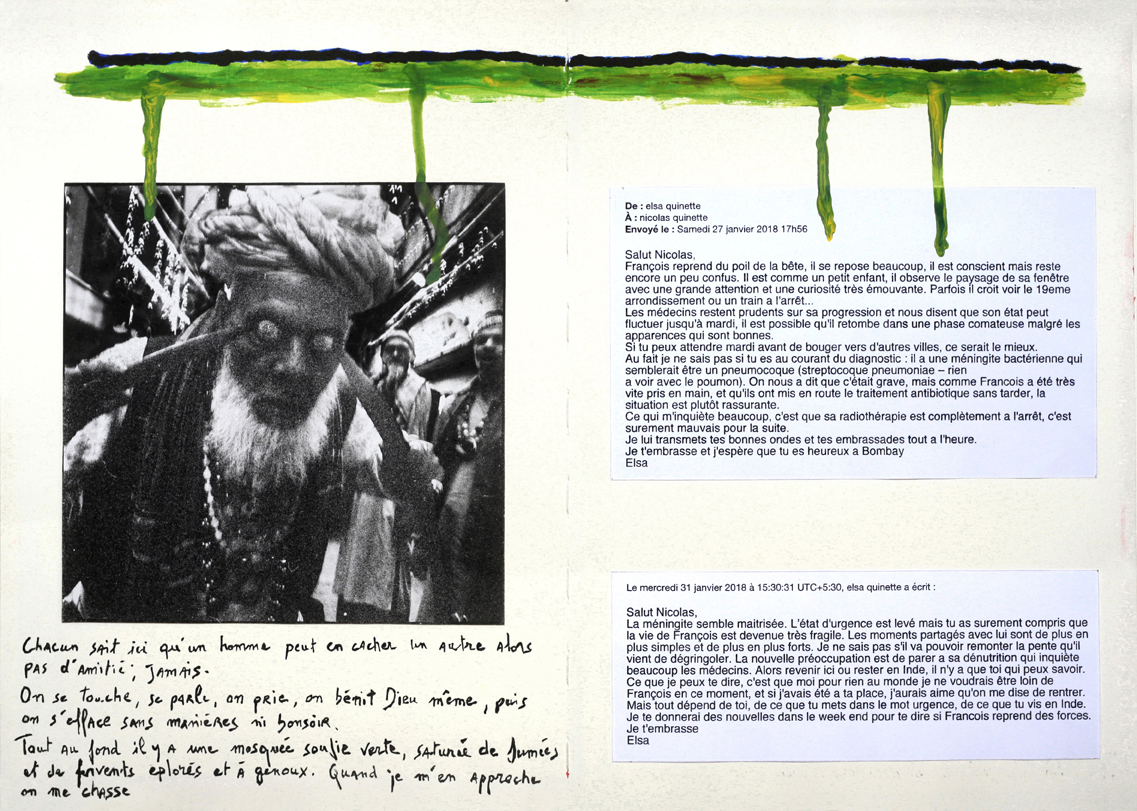 Chacun sait ici qu'un homme peut en cacher un autre alors
pas d'amitié, jamais.
On se touche, se parle, on prie, on bénit Dieu même, puis
on s'efface sans manières ni bonsoir.
Tout au fond il y a une mosquée soufie verte, saturée de fumées
et de fervents eplorés et à genoux. Quand je m'en approche
on me chasse
De : elsa quinette
À : nicolas quinette
Envoyé le : Samedi 27 janvier 2018 17h56
Salut Nicolas,
François reprend du poil de la bête, il se repose beaucoup, il est conscient mais reste
encore un peu confus. Il est comme un petit enfant, il observe le paysage de sa fenêtre
avec une grande attention et une curiosité très émouvante. Parfois il croit voir le 19eme
arrondissement ou un train a l'arrêt...
Les médecins restent prudents sur sa progression et nous disent que son état peut
fluctuer jusqu'à mardi, il est possible qu'il retombe dans une phase comateuse malgré les
apparences qui sont bonnes.
Si tu peux attendre mardi avant de bouger vers d'autres villes, ce serait le mieux.
Au fait je ne sais pas si tu es au courant du diagnostic : il a une méningite bactérienne qui
semblerait être un pneumocoque (streptocoque pneumoniae – rien
a voir avec le poumon). On nous a dit que c'était grave, mais comme Francois a été très
vite pris en main, et qu'ils ont mis en route le traitement antibiotique sans tarder, la
situation est plutôt rassurante.
Ce qui m'inquiète beaucoup, c'est que sa radiothérapie est complètement a l'arrêt, c'est
surement mauvais pour la suite.
Je lui transmets tes bonnes ondes et tes embrassades tout a l'heure.
Je t'embrasse et j'espère que tu es heureux a Bombay
Elsa
Le mercredi 31 janvier 2018 à 15:30:31 UTC+5:30, elsa quinette a écrit :
Salut Nicolas,
La méningite semble maitrisée. L'état d'urgence est levé mais tu as surement compris que
la vie de François est devenue très fragile. Les moments partagés avec lui sont de plus en
plus simples et de plus en plus forts. Je ne sais pas s'il va pouvoir remonter la pente qu'il
vient de dégringoler. La nouvelle préoccupation est de parer a sa dénutrition qui inquiète
beaucoup les médecins. Alors revenir ici ou rester en Inde, il n'y a que toi qui peux savoir.
Ce que je peux te dire, c'est que moi pour rien au monde je ne voudrais être loin de
François en ce moment, et si j'avais été a ta place, j'aurais aime qu'on me dise de rentrer.
Mais tout dépend de toi, de ce que tu mets dans le mot urgence, de ce que tu vis en Inde.
Je te donnerai des nouvelles dans le week end pour te dire si Francois reprend des forces.
Je t'embrasse
Elsa